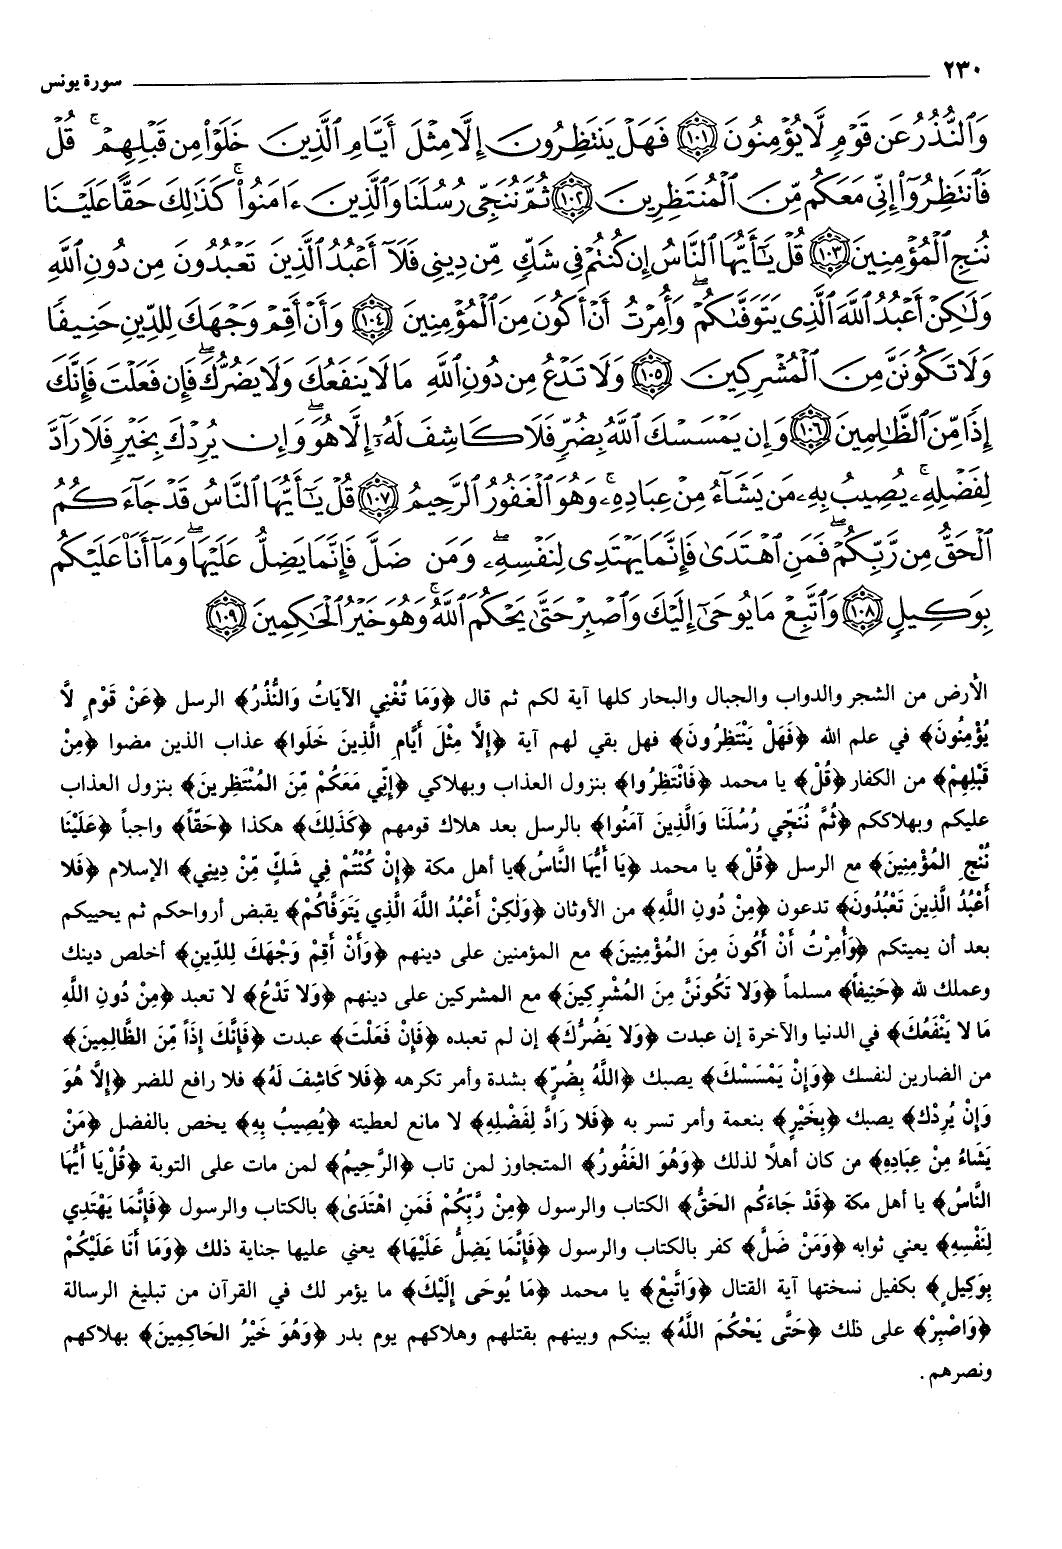 ٢٣٠ سورة يونس
وَٱلنُّذُرُ عَن قَوْمٍ لَّا يُؤْمِنُونَ ١٠١ فَهَلْ يَنتَظِرُونَ إِلَّا مِثْلَ أَيَّامِ ٱلَّذِينَ خَلَوْا۟ مِن قَبْلِهِمْ ۚ قُلْ
فَٱنتَظِرُوٓا۟ إِنِّى مَعَكُم مِّنَ ٱلْمُنتَظِرِينَ ١٠٢ ثُمَّ نُنَجِّى رُسُلَنَا وَٱلَّذِينَ ءَامَنُوا۟ ۚ كَذَٰلِكَ حَقًّا عَلَيْنَا
نُنجِ ٱلْمُؤْمِنِينَ ١٠٣ قُلْ يَـٰٓأَيُّهَا ٱلنَّاسُ إِن كُنتُمْ فِى شَكٍّ مِّن دِينِى فَلَآ أَعْبُدُ ٱلَّذِينَ تَعْبُدُونَ مِن دُونِ ٱللَّهِ
وَلَـٰكِنْ أَعْبُدُ ٱللَّهَ ٱلَّذِى يَتَوَفَّىٰكُمْ ۖ وَأُمِرْتُ أَنْ أَكُونَ مِنَ ٱلْمُؤْمِنِينَ ١٠٤ وَأَنْ أَقِمْ وَجْهَكَ لِلدِّينِ حَنِيفًا
وَلَا تَكُونَنَّ مِنَ ٱلْمُشْرِكِينَ ١٠٥ وَلَا تَدْعُ مِن دُونِ ٱللَّهِ مَا لَا يَنفَعُكَ وَلَا يَضُرُّكَ ۖ فَإِن فَعَلْتَ فَإِنَّكَ
إِذًا مِّنَ ٱلظَّـٰلِمِينَ ١٠٦ وَإِن يَمْسَسْكَ ٱللَّهُ بِضُرٍّ فَلَا كَاشِفَ لَهُۥٓ إِلَّا هُوَ ۖ وَإِن يُرِدْكَ بِخَيْرٍ فَلَا رَآدَّ
لِفَضْلِهِۦ ۚ يُصِيبُ بِهِۦ مَن يَشَآءُ مِنْ عِبَادِهِۦ ۚ وَهُوَ ٱلْغَفُورُ ٱلرَّحِيمُ ١٠٧ قُلْ يَـٰٓأَيُّهَا ٱلنَّاسُ قَدْ جَآءَكُمُ
ٱلْحَقُّ مِن رَّبِّكُمْ ۖ فَمَنِ ٱهْتَدَىٰ فَإِنَّمَا يَهْتَدِى لِنَفْسِهِۦ ۖ وَمَن ضَلَّ فَإِنَّمَا يَضِلُّ عَلَيْهَا ۖ وَمَآ أَنَا۠ عَلَيْكُم
بِوَكِيلٍ ١٠٨ وَٱتَّبِعْ مَا يُوحَىٰٓ إِلَيْكَ وَٱصْبِرْ حَتَّىٰ يَحْكُمَ ٱللَّهُ ۚ وَهُوَ خَيْرُ ٱلْحَـٰكِمِينَ ١٠٩
الأرض من الشجر والدواب والجبال والبحار كلها آية لكم ثم قال ﴿وَمَا تُغْنِي الآيَاتُ وَالنُّذُرُ﴾ الرسل ﴿عَنْ قَوْمٍ لَّا
يُؤْمِنُونَ﴾ في علم الله ﴿فَهَلْ يَنْتَظِرُونَ﴾ فهل بقي لهم آية ﴿إِلَّا مِثْلَ أَيَّامِ الَّذِينَ خَلَوا﴾ عذاب الذين مضوا ﴿مِنْ
قَبْلِهِمْ﴾ من الكفار ﴿قُلْ﴾ يا محمد ﴿فَانْتَظِرُوا﴾ بنزول العذاب وبهلاكي ﴿إِنِّي مَعَكُمْ مِّنَ المُنْتَظِرِينَ﴾ بنزول العذاب
عليكم وبهلاككم ﴿ثُمَّ نُنَجِّي رُسُلَنَا وَالَّذِينَ آمَنُوا﴾ بالرسل بعد هلاك قومهم ﴿كَذَلِكَ﴾ هكذا ﴿حَقّاً﴾ واجباً ﴿عَلَيْنَا
نُنْجِ المُؤْمِنِينَ﴾ مع الرسل ﴿قُلْ﴾ يا محمد ﴿يَا أَيُّهَا النَّاسُ﴾ يا أهل مكة ﴿إِنْ كُنْتُمْ فِي شَكٍّ مِّنْ دِينِي﴾ الإسلام ﴿فَلا
أَعْبُدُ الَّذِينَ تَعْبُدُونَ﴾ تدعون ﴿مِنْ دُونِ اللَّهِ﴾ من الأوثان ﴿وَلَكِنْ أَعْبُدُ اللَّهَ الَّذِي يَتَوَفَّاكُمْ﴾ يقبض أرواحكم ثم يحييكم
بعد أن يميتكم ﴿وَأُمِرْتُ أَنْ أَكُونَ مِنَ المُؤْمِنِينَ﴾ مع المؤمنين على دينهم ﴿وَأَنْ أَقِمْ وَجْهَكَ لِلدِّينِ﴾ أخلص دينك
وعملك لله ﴿حَنِيفاً﴾ مسلماً ﴿وَلا تَكُونَنَّ مِنَ المُشْرِكِينَ﴾ مع المشركين على دينهم ﴿وَلا تَدْعُ﴾ لا تعبد ﴿مِنْ دُونِ اللَّهِ
مَا لا يَنْفَعُكَ﴾ في الدنيا والآخرة إن عبدت ﴿وَلا يَضُرُّكَ﴾ إن لم تعبده ﴿فَإِنْ فَعَلْتَ﴾ عبدت ﴿فَإِنَّكَ إِذَاً مِّنَ الظَّالِمِينَ﴾
من الضارين لنفسك ﴿وَإِنْ يَمْسَسْكَ﴾ يصبك ﴿اللَّهُ بِضُرٍّ﴾ بشدة وأمر تكرهه ﴿فَلا كَاشِفَ لَهُ﴾ فلا رافع للضر ﴿إِلَّا هُوَ
وَإِنْ يُرِدْكَ﴾ يصبك ﴿بِخَيْرٍ﴾ بنعمة وأمر تسر به ﴿فَلا رَادَّ لِفَضْلِهِ﴾ لا مانع لعطيته ﴿يُصِيبُ بِهِ﴾ يخص بالفضل ﴿مَنْ
يَشَاءُ مِنْ عِبَادِهِ﴾ من كان أهلاً لذلك ﴿وَهُوَ الغَفُورُ﴾ المتجاوز لمن تاب ﴿الرَّحِيمُ﴾ لمن مات على التوبة ﴿قُلْ يَا أَيُّهَا
النَّاسُ﴾ يا أهل مكة ﴿قَدْ جَاءَكُم الحَقُّ﴾ الكتاب والرسول ﴿مِنْ رَّبِّكُمْ فَمَنِ اهْتَدَىٰ﴾ بالكتاب والرسول ﴿فَإِنَّمَا يَهْتَدِي
لِنَفْسِهِ﴾ يعني ثوابه ﴿وَمَنْ ضَلَّ﴾ كفر بالكتاب والرسول ﴿فَإِنَّمَا يَضِلُّ عَلَيْهَا﴾ يعني عليها جناية ذلك ﴿وَمَا أَنَا عَلَيْكُمْ
بِوَكِيلٍ﴾ بكفيل نسختها آية القتال ﴿وَاتَّبِعْ﴾ يا محمد ﴿مَا يُوحَى إِلَيْكَ﴾ ما يؤمر لك في القرآن من تبليغ الرسالة
﴿وَاصْبِرْ﴾ على ذلك ﴿حَتَّى يَحْكُمَ اللَّهُ﴾ بينكم وبينهم بقتلهم وهلاكهم يوم بدر ﴿وَهُوَ خَيْرُ الحَاكِمِينَ﴾ بهلاكهم
ونصرهم.